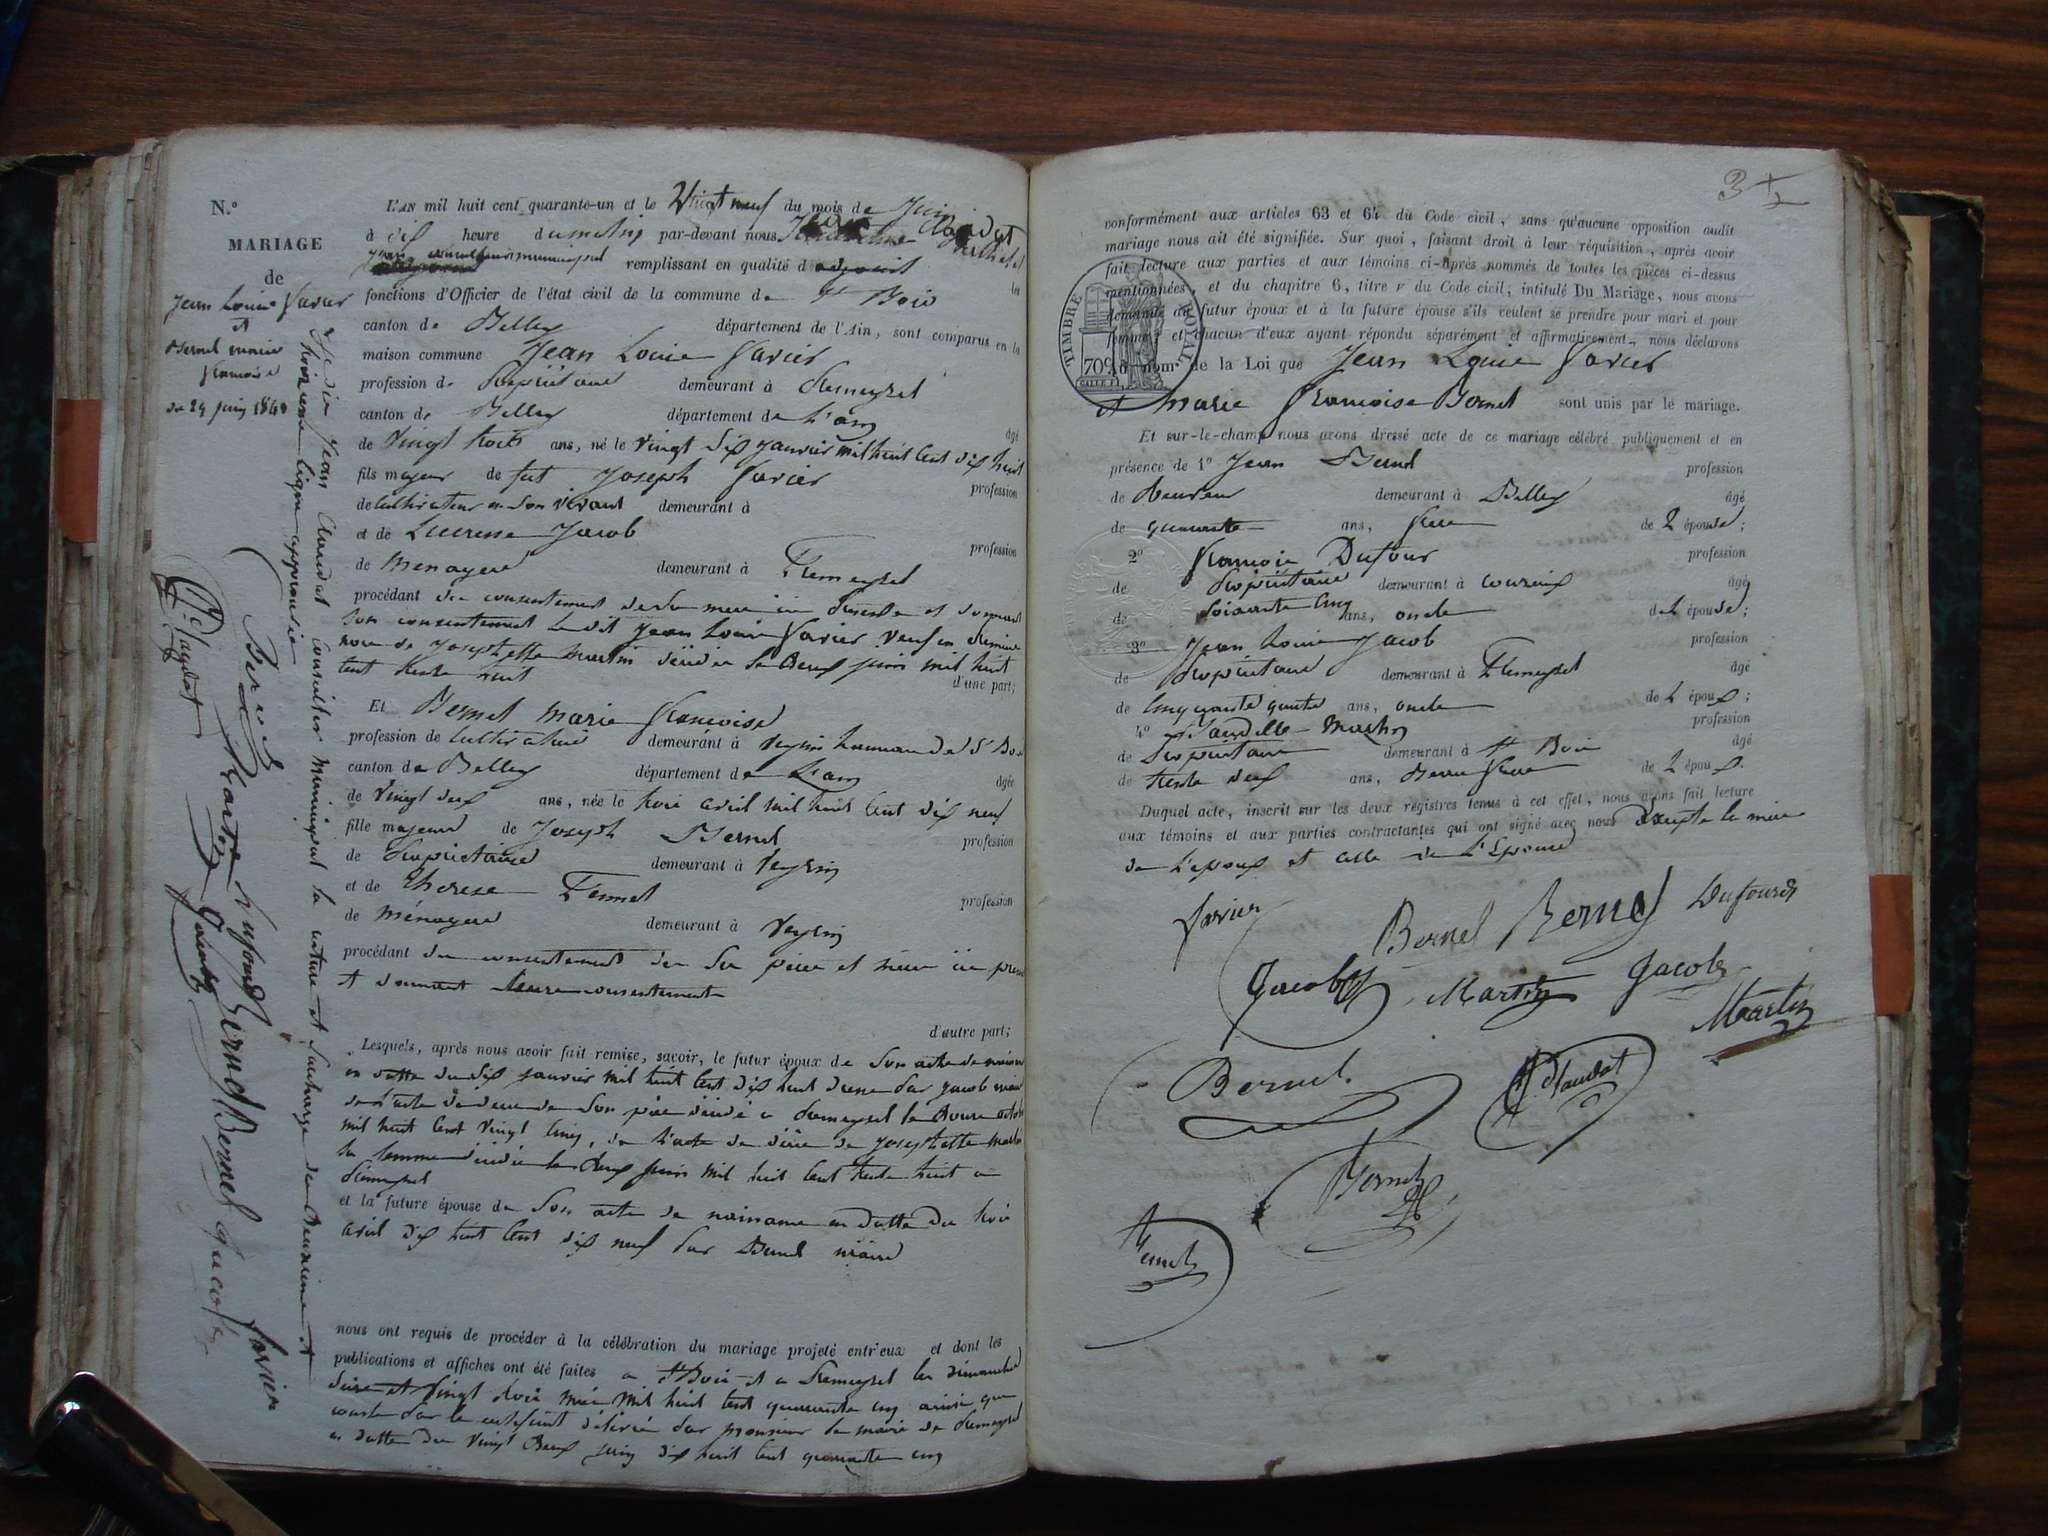 N.o
MARIAGE
de
Jean Louis Varvier
et
Bernel marie
francoise
du 29 juin 184
L'AN mil huit cent quarante-un et le Vingt neuf du mois de Juin
à dix heure du matin par-devant nous Claudat
Jean conseiller municipal remplissant en qualité d adjoint les
fonctions d'Officier de l'état civil de la commune de St Bois
canton de Belley département de l'Ain, sont comparus en la
maison commune Jean Louis
profession de Propriétaire demeurant à Premeyzel
canton de Belley département de L'ain âgé
de Vingt trois ans, né le vingt dix janvier mil huit cent dix huit
fils majeur de fut Joseph profession
de Cultivateur en son vivant demeurant à
et de Lucresse Jacob profession
de menagere demeurant à Premeyzel
procédant du consentement de sa mere ici presente et donnant
son consentement le dit Jean Louis veuf en premiere
noce de Josephette Martin décédée le deux juin mil huit
cent trente huit d'une part;
Et Bernel Marie francoise
profession de Cultivatrice demeurant à Veyrin hameau de St Bois
canton de Belley département de L'ain âgée
de Vingt deux ans, née le trois avril mil huit cent dix neuf
fille majeure de Joseph Bernel profession
de Propriétaire demeurant à Veyrin
et de Therese profession
de ménagere demeurant à Veyrin
procédant du consentement de ses père et mere ici
et donnant leurs consentement
d'autre part;
Lesquels, après nous avoir fait remise, savoir, le futur époux de Son acte de
en datte du dix janvier mil huit cent dix huit par Jacob maire
de l'acte de de son père décédé a premeyzel le Douze
mil huit cent vingt cinq, de l'acte de de Josephette
sa femme décédée le deux juin mil huit cent trente huit a
premeyzel
et la future épouse de Son acte de naissance en datte du trois
avril dix huit cent dix neuf par Bernel maire
nous ont requis de procéder à la célébration du mariage projeté entr'eux et dont les
publications et affiches ont été faites a St Bois et a Premeyzel les dimanches
et vingt trois mai mil huit cent quarante un ainsi que
conste par le certificat délivré par monsieur le maire de premeyzel
en datte du vingt Deux juin dix huit cent quarante un
Jean Claudat conseiller municipal la rature et surcharge de la Deuxieme et
troisieme ligne approuvée
Bernel Martin Dufourd Bernel Bernel Jacob
Claudat Jacob
3
conformément aux articles 63 et 64 du Code civil, sans qu'aucune opposition audit
mariage nous ait été signifiée. Sur quoi, faisant droit à leur réquisition, après avoir
fait lecture aux parties et aux témoins ci-après nommés de toutes les pièces ci-dessus
mentionnées, et du chapitre 6, titre v du Code civil, intitulé Du Mariage, nous avons
demandé au futur époux et à la future épouse s'ils veulent se prendre pour mari et pour
femme; et chacun d'eux ayant répondu séparément et affirmativement, nous déclarons
au nom de la Loi que Jean Louis
et Marie francoise Bernel sont unis par le mariage.
TIMBRE ROYAL
70c
Et sur-le-champ nous avons dressé acte de ce mariage célébré publiquement et en
présence de 1o Jean Bernel profession
de demeurant à Belley âgé
de quarante ans, frere de L épouse;
2o francois Dufour profession
de Propriétaire demeurant à couzieux âgé
de soixante cinq ans, oncle de L épouse;
3o Jean Louis Jacob profession
de propriétaire demeurant à Premeyzel âgé
de cinquante quatre ans, oncle de L époux;
4o Martin profession
de Propriétaire demeurant à St Bois âgé
de trente deux ans, Beau frere de L époux.
Duquel acte, inscrit sur les deux régistres tenus à cet effet, nous avons fait lecture
aux témoins et aux parties contractantes qui ont signé avec nous excepté la mère
de L'epoux et celle de L'Epouse
Bernel Bernel Dufourd
Jacob Martin Jacob
Martin
Bernel Claudat
Bernel